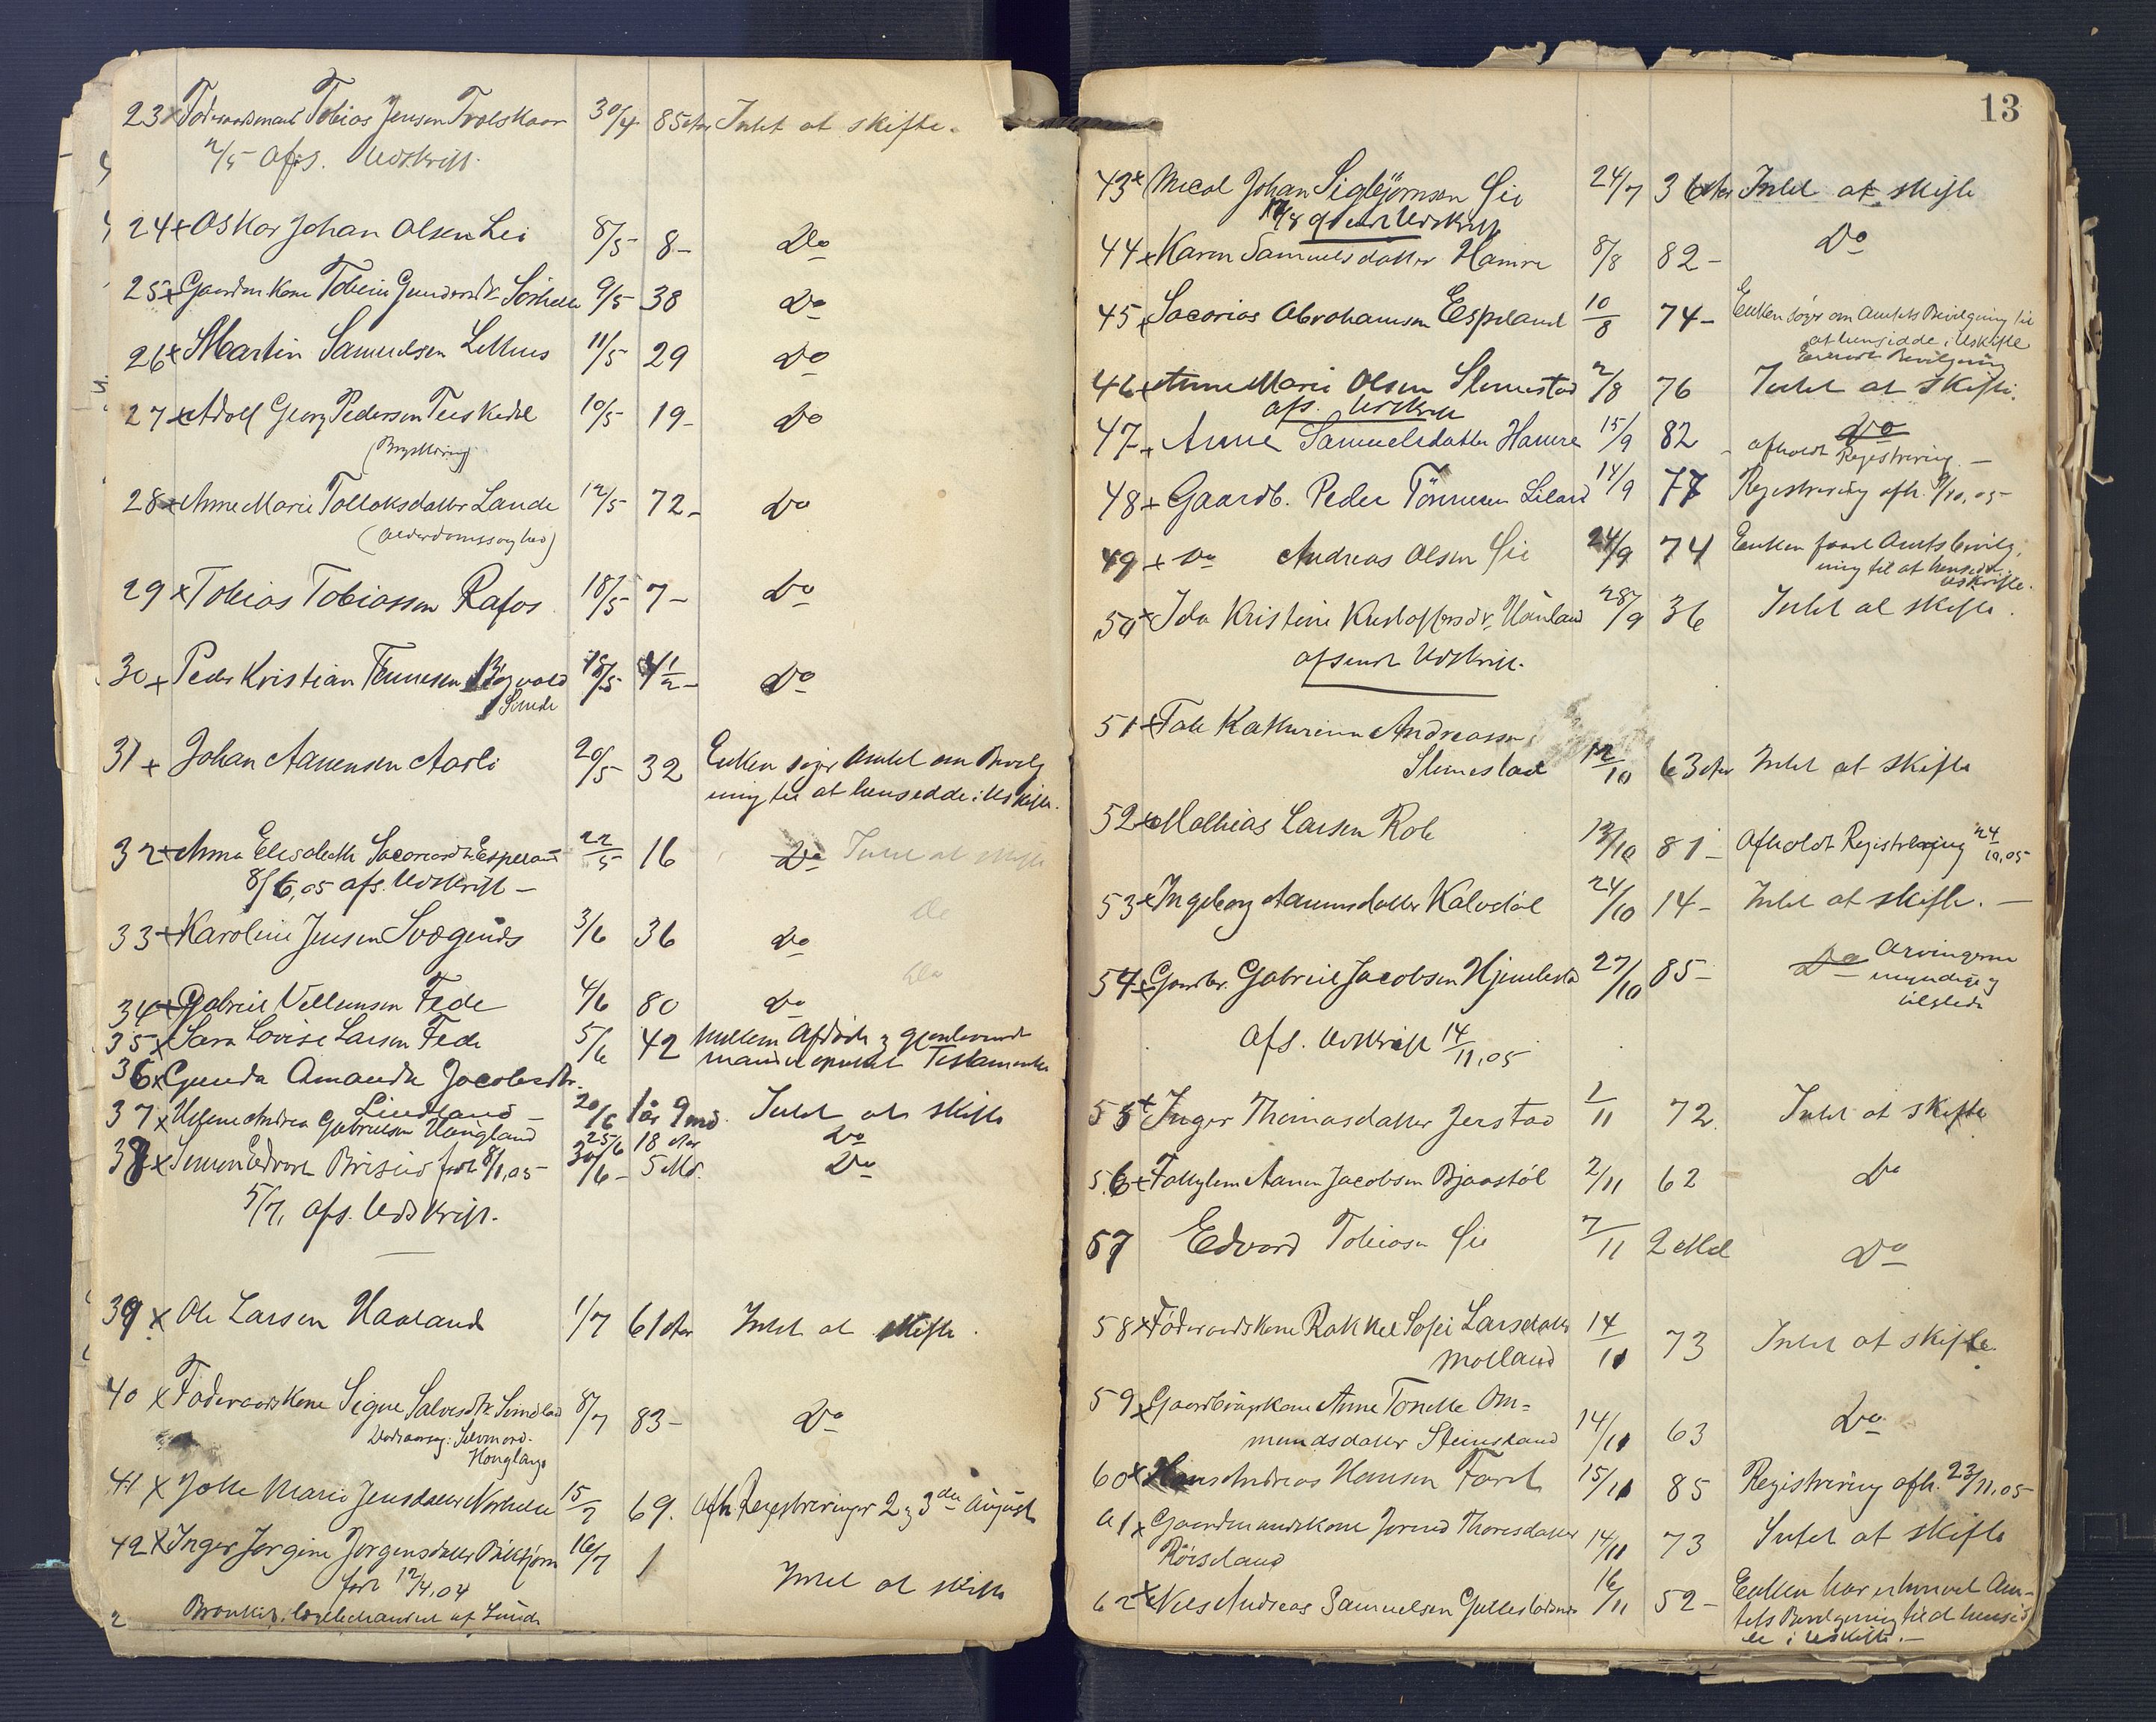 23 x Føderaadsmand Tobias Jensen Trolskaar 30/4 85 Aar Intet at skifte.
12/5 Afs. Udskrift.
24 x Oskar Johan Olsen Lei 8/5 8 - Do
25 x Gaardm. Kone Tobine Gundersdtr. Sørhelle 9/5 38 Do
26 x Martin Samuelsen Lethus 11/5 29 Do
27 x Adolf Georg Pedersen Teeskedal 10/5 19 - Do
28 x Anne Marie Tollaksdatter Lande 12/5 72 - Do
(Alderdomssvaghed)
29 x Tobias Tobiassen Rafos 18/5 7 - Do
30 x Peder Kristian Tennesen 18/5 4 1/2 - Do
Sande
31 x Johan Aanensen Aarli 20/5 32 Enken søger Amtet om Bevilg
ning til at hensidde i Uskifte.
32 x Anna Elisabeth Sacariasdtr. Espeland 22/5 16 Do Intet at skifte
8/6, 05 afs. Udskrift -
33 x Karoline Jensen Svægends 3/6 36 Do
34 x Gabriel Vellumsen Fede 4/6 80 Do
35 x Sara Lovise Larsen Fede 5/6 42 Mellem Afdøde og gjenlevende
mand oprettet Testamente
36 x Gunda Amanda Jacobsdtr.
Lindland - 20/6 1 år 9 md Intet at skifte
37 x Helene Andrea Gabrielsen Haugland 25/6 18 Aar Do
38 x Simen Edvart Briseis født 8/1, 05 - 30/6 - 5 Md. Do
5/7, afs. Udskrift.
39 x Ole Larsen Haaland 1/7 61 Aar Intet at skifte.
40 x Føderaadskone Signe Salvesdtr. 8/7 83 - Do
Dødsaarsag: Selvmord -
Hængning
41 x Jotte Marie Jensdatter Nørhelle 15/7 69. Afh. Registreringer 2 og 3die August
42 x Inger Jørgine Jørgensdatter 16/7 1 Intet at skifte
født 12/4, 04
Bronkit. lægebehandlet af Lund
2
13
43 x Mical Johan Sigbjørnsen Gie 24/7 36 Aar Intet at skifte
17/8 afsendt Udskrift
44 x Karen Samuelsdatter Hamre 8/8 82 - Do
45 x Sacarias Abrahamsen Espeland 10/8 74 - Enken søger om Amtets Bevilgning til
at hensidde i Uskifte
Erhvervet Bevilgning
46 x Anne Marie Olsen Slimestad 2/8 76 Intet at skifte.
afs. Udskrift
47 x Anne Samuelsdatter Hamre 15/9 82 - Do
afholdt Registrering -
48 x Gaardb. Peder Tönnesen Liland 14/9 77 Registrering afh. 9/10, 05 -
49 x Do Andreas Olsen Gie 24/9 74 Enken faaet Amtsbevilg,
ning til at hensidde i
uskifte.
50 x Ida Kristine Kristoffersdtr. Haaland 28/9 36 Intet at skifte.
afsendt Udskrift.
51 x Tale Kathrine Andreassen
Slimestad 12/10 63 Aar Intet at skifte
52 x Mathias Larsen Rob 12/10 81 - Afholdt Registrering 24/10, 05
53 x Ingeborg Aanensdatter Kalvedal 24/10 14 - Intet at skifte. -
54 x Gaardbr. Gabriel Jacobsen 27/10 85 - Do Arvingerne
myndige og
tilstede
Afs. Udskrift 14/11, 05
55 x Inger Thomasdatter Jerstad 1/11 72 Intet at skifte
56 x Fattiglem Aanen Jacobsen Bjaastöl 2/11 62 Do
57 Edvard Tobiasn Gie 7/11 2 Md Do
58 x Føderaadskone Rakkel Sofie Larsdatter
Molland 14/11 73 Intet at skifte.
59 x Gaardbrugerkone Anne Tonette Om=
mundsdatter Steinsland 14/11 63 Do
60 x Hans Andreas Hansen 15/11 85 Registrering afh. 23/11, 05 -
61 x Gaardmandskone Jorend Thoresdatter
Röiseland 14/11 73 Intet at skifte
62 x Nils Andreas Samuelsen 16/11 52 - Enken har erhvervet Am-
tets Bevilgning til at hensid
de i uskifte. -